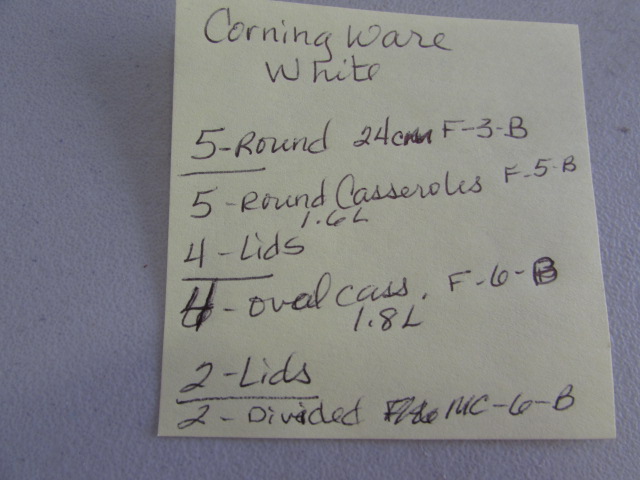 Corning Ware
White
5-Round 24cm F-3-B
5-Round Casseroles F-5-B
1.6L
4-Lids
4-oval cass. F-6-B
1.8L
2-Lids
2-Divided MC-6-B